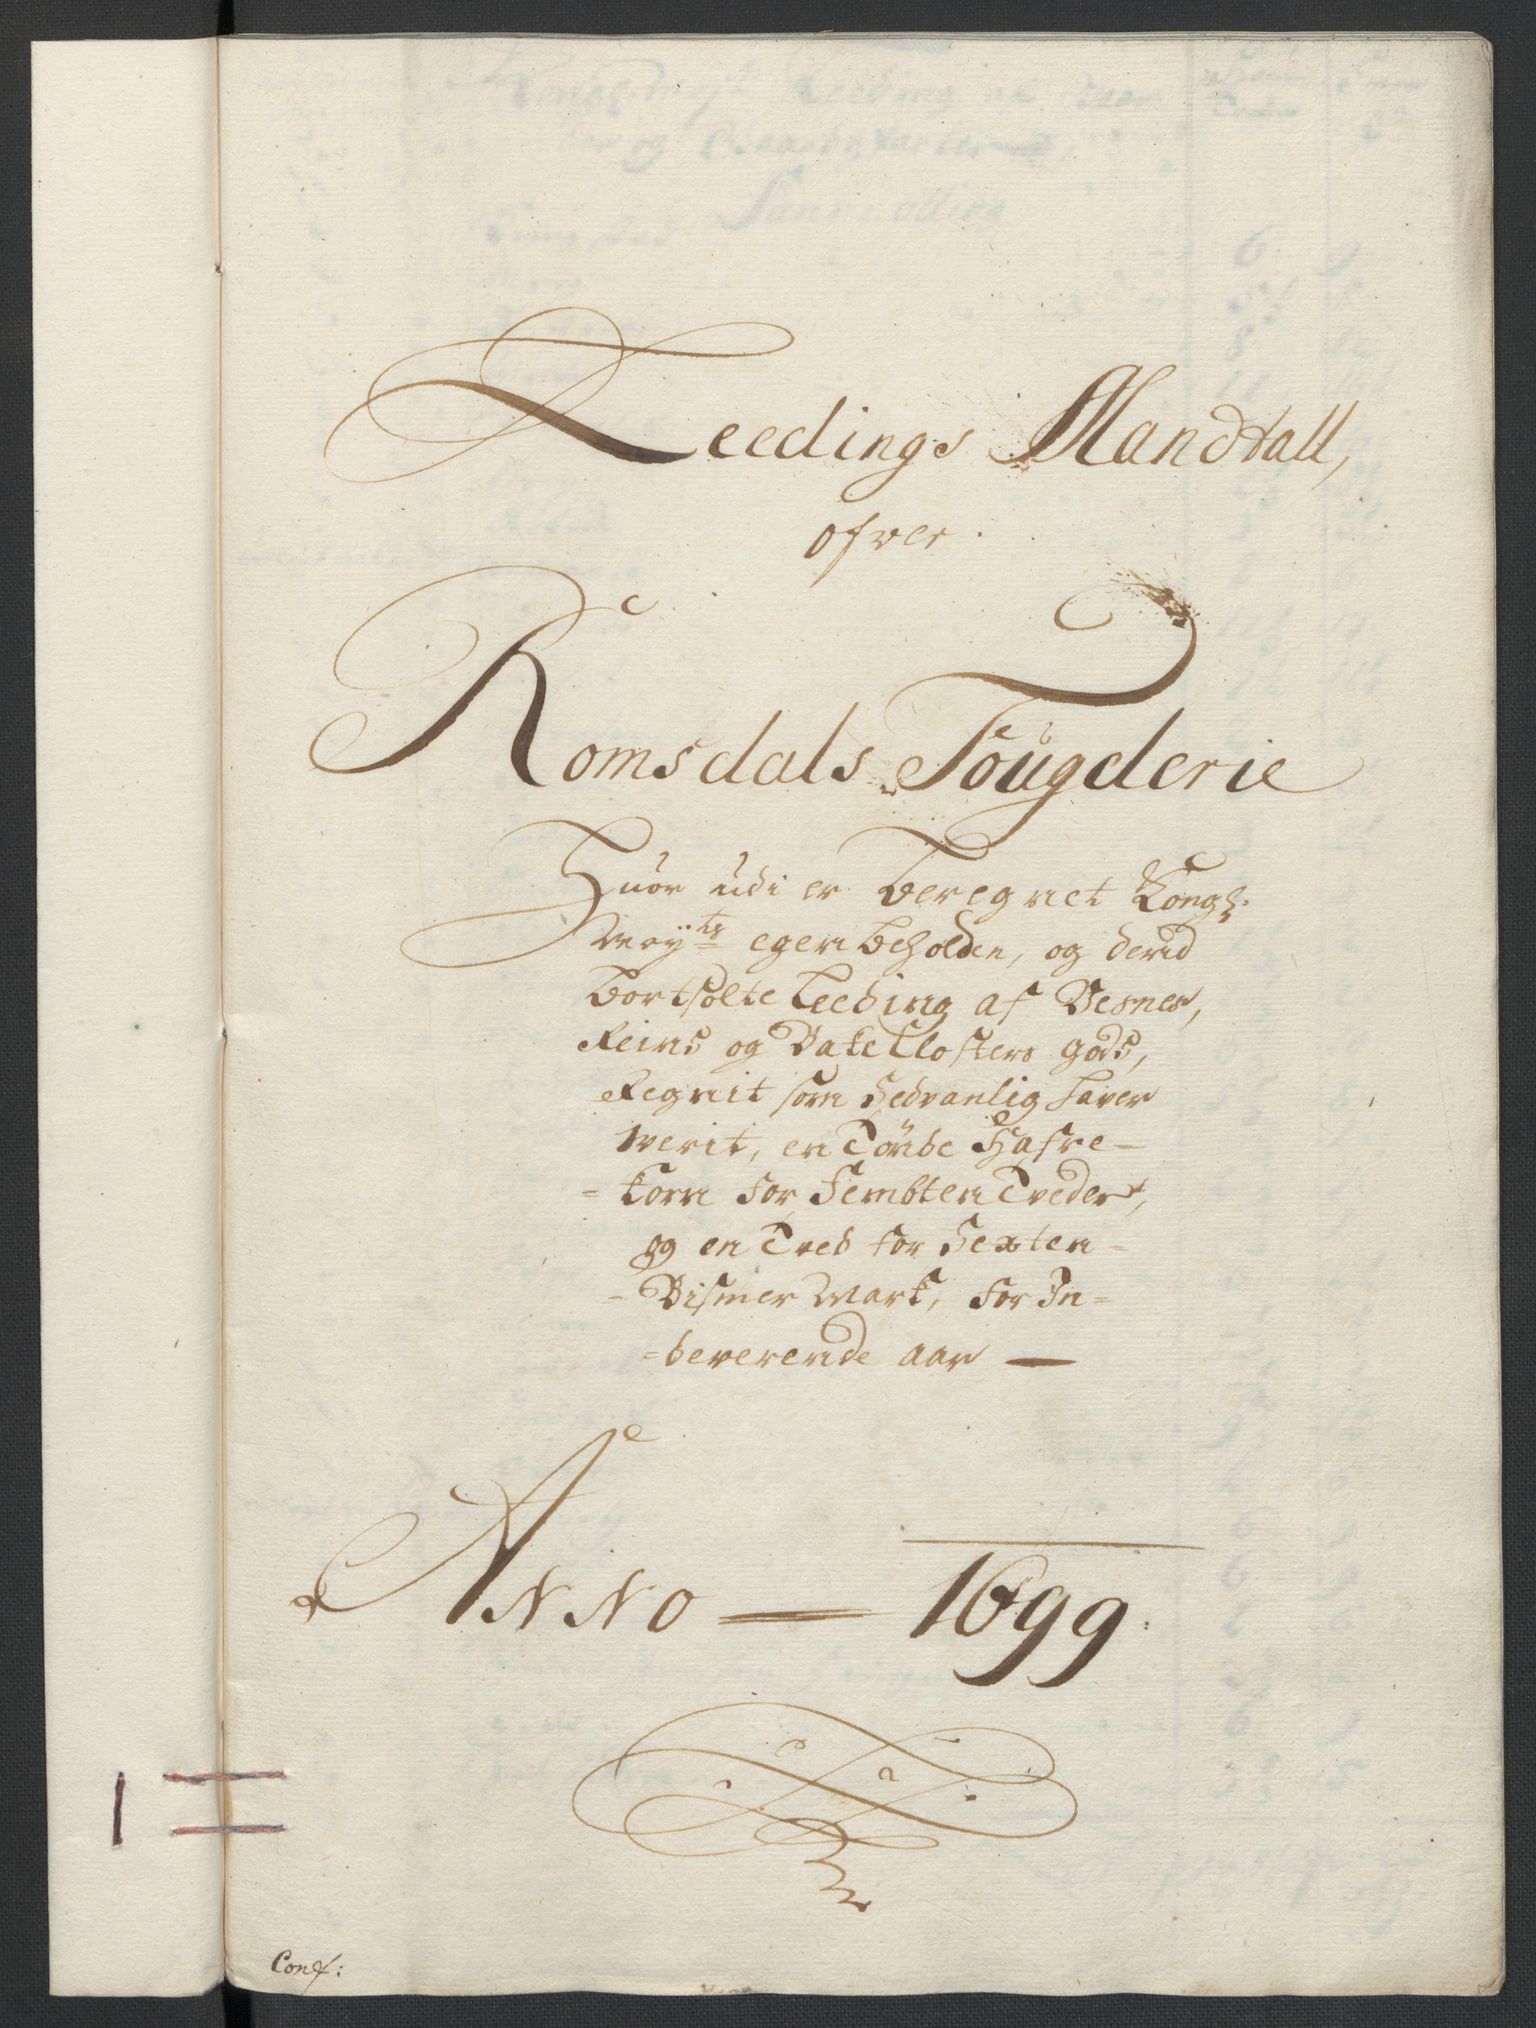 Leedings Mandtall,
ofver
Romsdals Fougderie
Huor udi er beregnet Kongl:
Mayts egen beholden, og derved
bortsolte Leeding af Vesnes,
Reins og Bakeklosters gods,
Regnit som Sedvanlig haver
verit, en Tønde Hafre-
=korn for Fembten Tveder,
og en Tved for Sexten=
=Bismer Mark, for In=
=deverende aar —
Anno — 1699.
Conf: